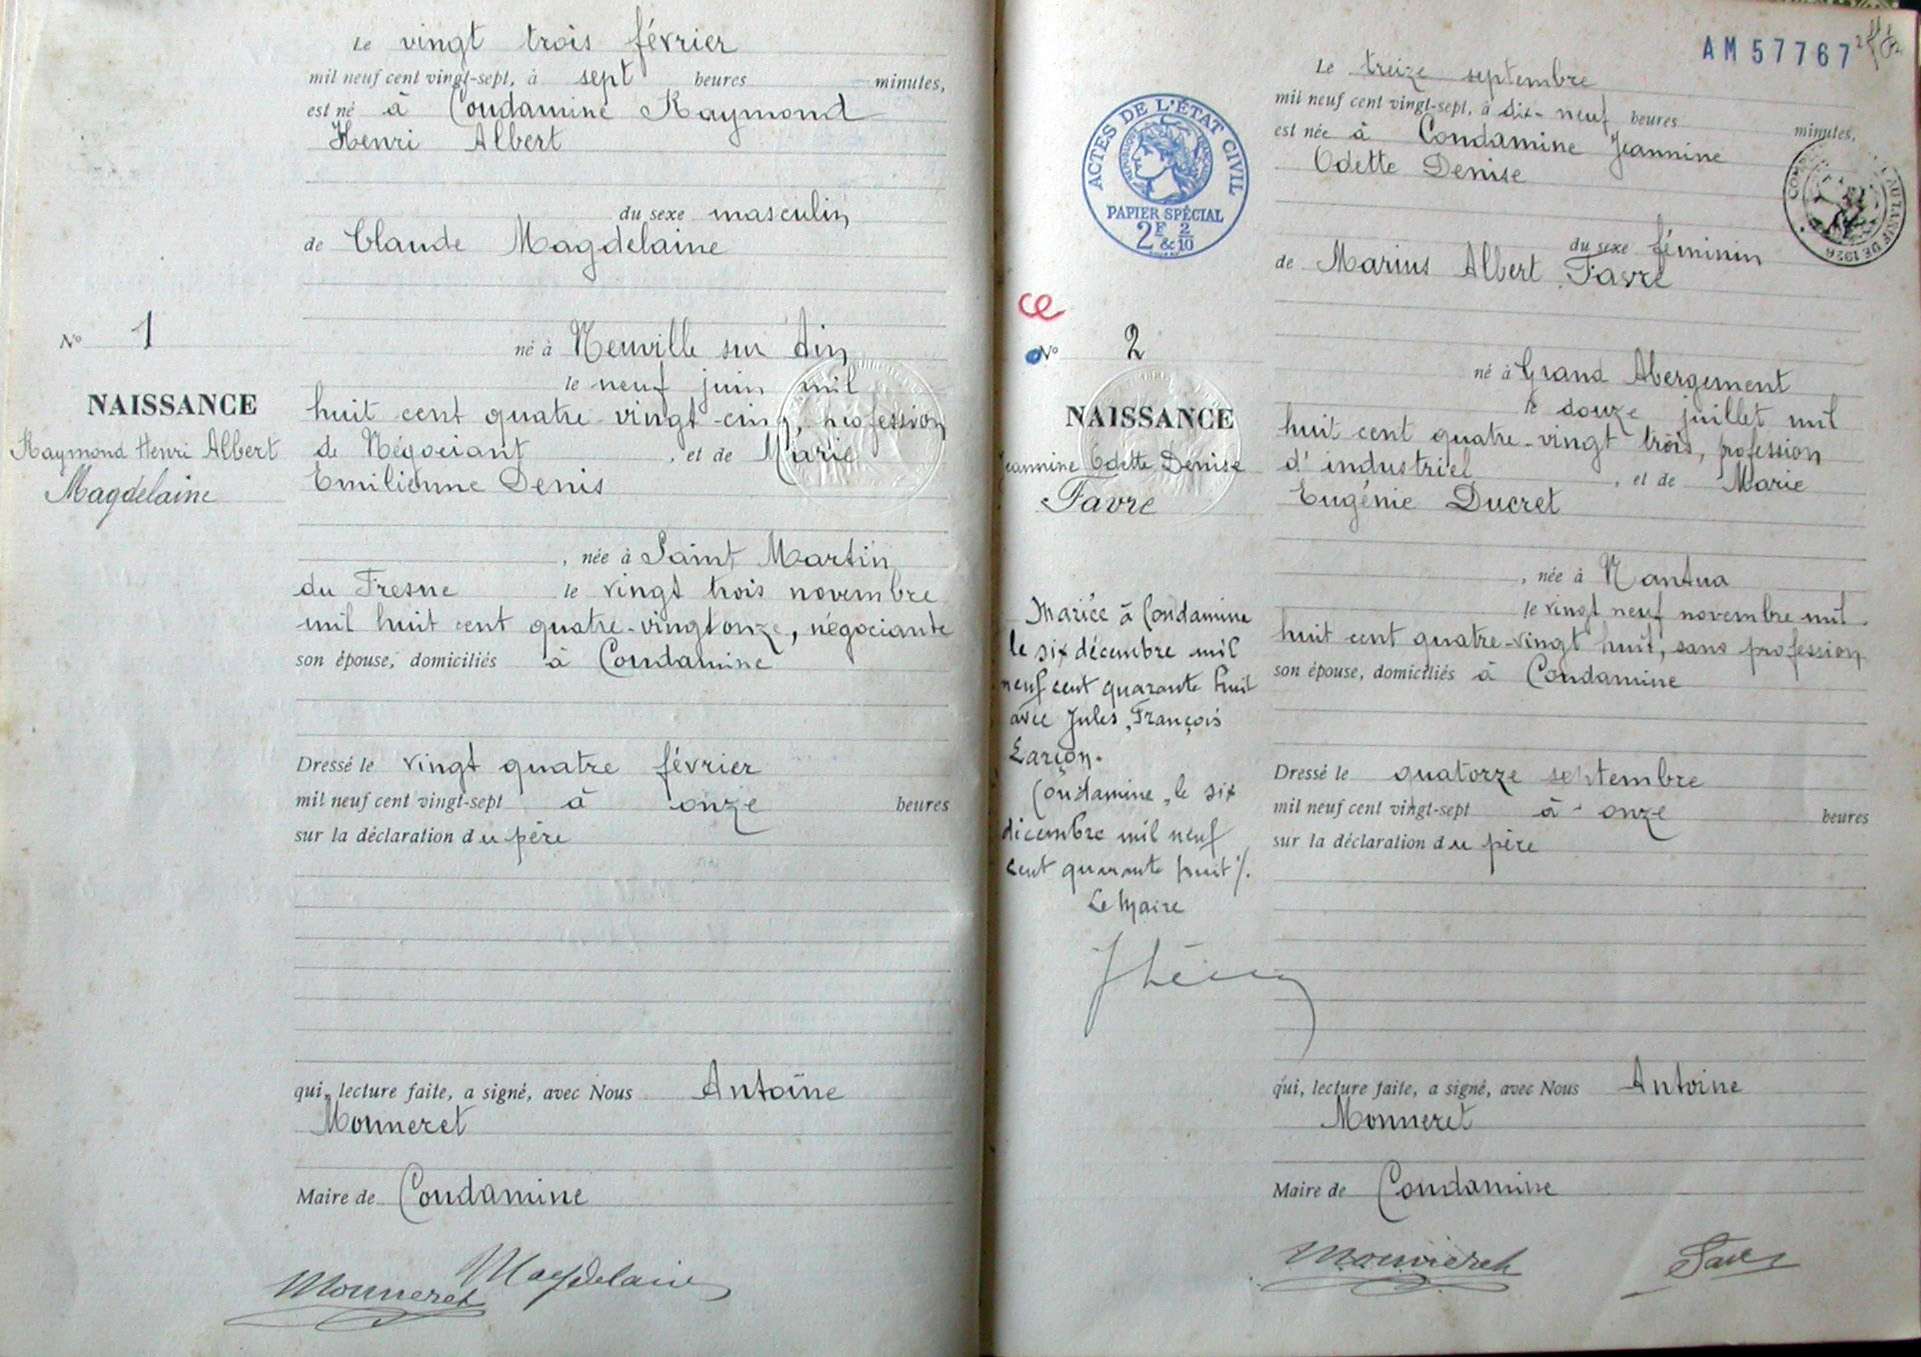 Le vingt trois février
mil neuf cent vingt-sept, à sept heures minutes,
est né à Condamine Raymond
Henri Albert
du sexe masculin
de Claude Magdelaine
né à Neuville sur Ain
le neuf juin mil
huit cent quatre-vingt-cinq, profession
de Négociant, et de Marie
Emilienne Denis
, née à Saint Martin
du Fresne le vingt trois novembre
mil huit cent quatre-vingt onze, négociante
son épouse, domiciliés à Condamine
Dressé le vingt quatre février
mil neuf cent vingt-sept à onze heures
sur la déclaration du père
qui, lecture faite, a signé, avec Nous Antoine
Monneret
Maire de Condamine
Monneret Magdelaine
No 1
NAISSANCE
Raymond Henri Albert
Magdelaine
AM 57767
Le treize septembre
mil neuf cent vingt-sept, à dix-neuf heures minutes,
est née à Condamine Jeannine
Odette Denise
du sexe féminin
de Marius Albert Favre
né à Grand Abergement
le douze juillet mil
huit cent quatre-vingt trois, profession
d'industriel, et de Marie
Eugénie Ducret
, née à Nantua
le vingt neuf novembre mil
huit cent quatre-vingt huit, sans profession
son épouse, domiciliés à Condamine
Dressé le quatorze septembre
mil neuf cent vingt-sept à onze heures
sur la déclaration du père
qui, lecture faite, a signé, avec Nous Antoine
Monneret
Maire de Condamine
Monneret Favre
ACTES DE L'ÉTAT CIVIL
PAPIER SPÉCIAL
2F & 2/10
ce
No 2
NAISSANCE
Jeannine Odette Denise
Favre
Mariée à Condamine
le six décembre mil
neuf cent quarante huit
avec Jules, François
Larçon.
Condamine, le six
décembre mil neuf
cent quarante huit %.
Le Maire